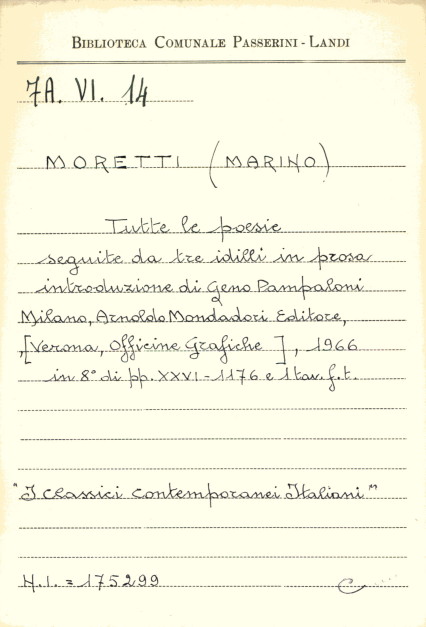 BIBLIOTECA COMUNALE PASSERINI - LANDI
7A. VI. 14
MORETTI (MARINO)
Tutte le poesie
seguite da tre idilli in prosa
introduzione di Geno Pampaloni
Milano, Arnoldo Mondadori Editore,
,[Verona, Officine Grafiche ], 1966
in 8° di pp. XXVI - 1176 e 1 tav. f. t.
"I classici contemporanei Italiani"
N. I. = 175299
C